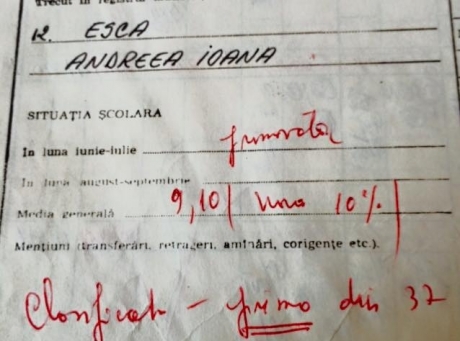 Trecut în registrul
R. ESCA
ANDREEA IOANA
SITUAȚIA ȘCOLARA
În luna iunie-iulie promovată
În luna august-septembrie
Media generală 9,10
10%
Mențiuni (transferări, retrageri, amînări, corigențe etc.).
prima din 37